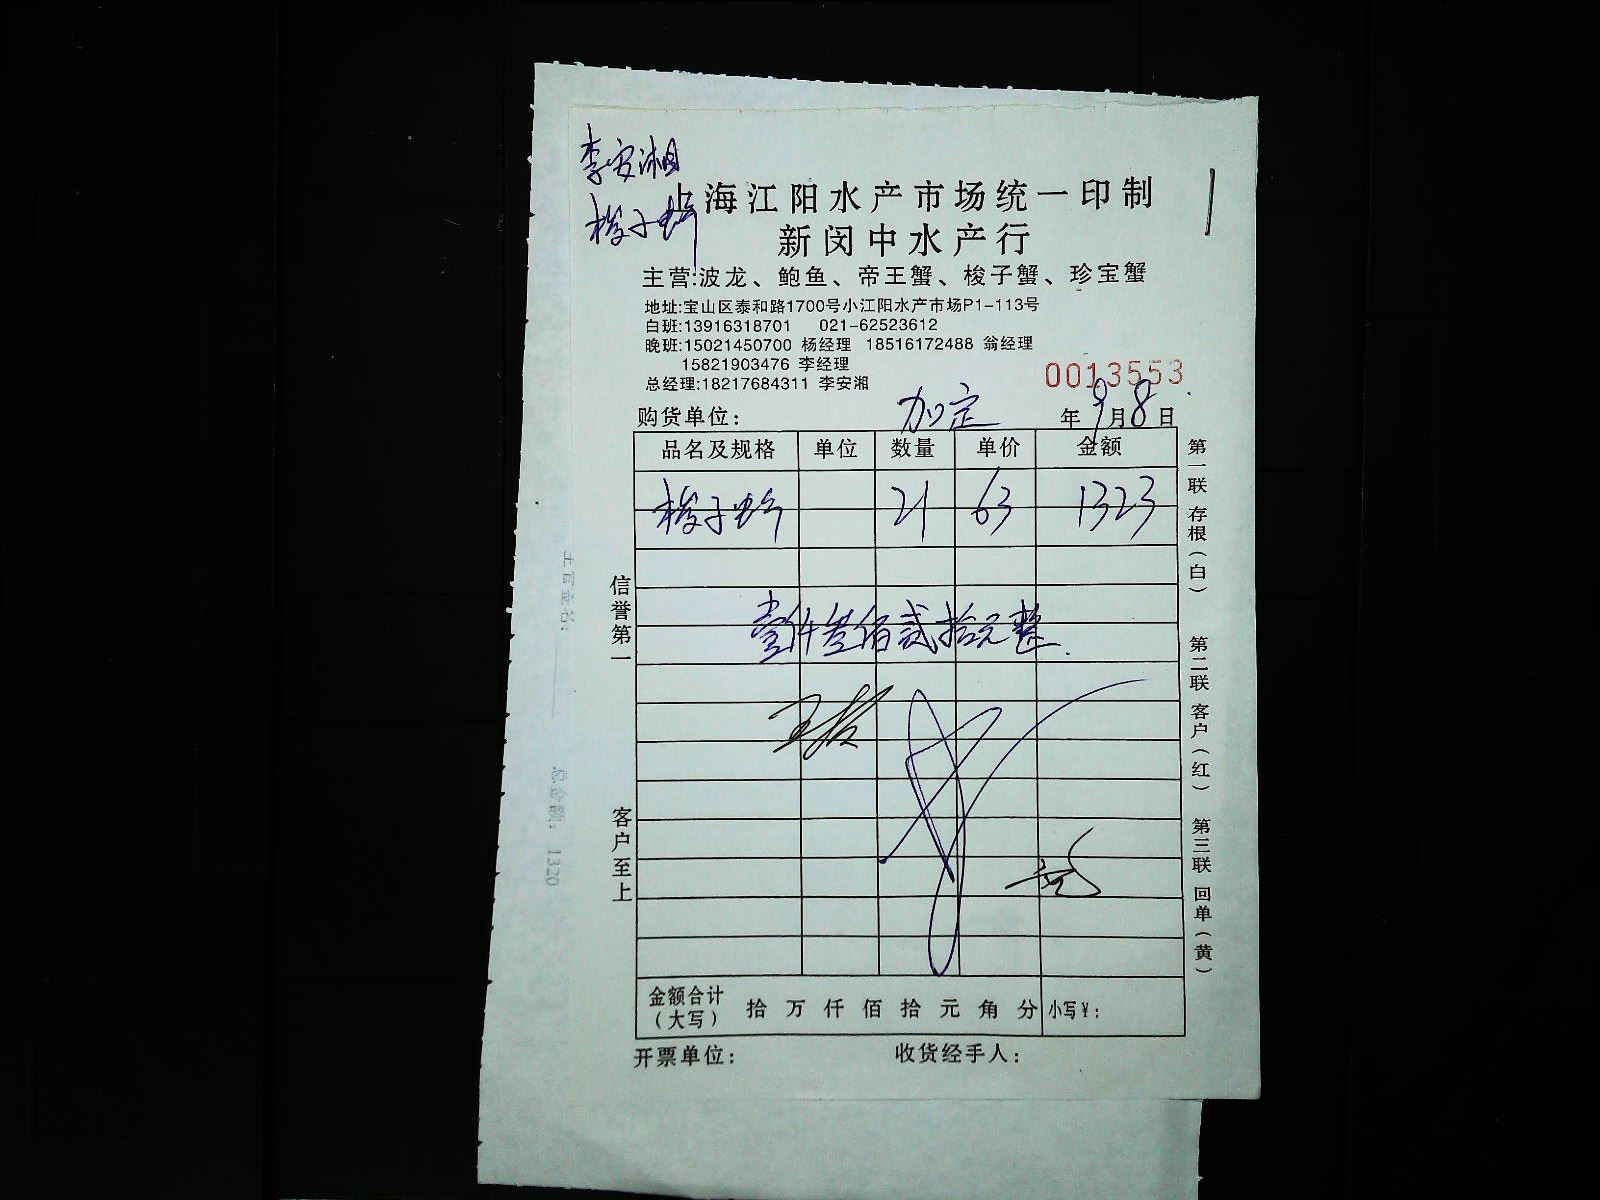 李安湘
梭子蟹
上海江阳水产市场统一印制
新闵中水产行
主营:波龙、鲍鱼、帝王蟹、梭子蟹、珍宝蟹
地址:宝山区泰和路1700号小江阳水产市场P1-113号
白班:13916318701 021-62523612
晚班:15021450700 杨经理 18516172488 翁经理
15821903476 李经理
总经理:18217684311 李安湘
0013553
购货单位: 加定 年9月8日
品名及规格 单位 数量 单价 金额
梭子蟹 21 63 1323
壹仟叁佰贰拾元整.
金额合计(大写) 拾 万 仟 佰 拾 元 角 分 小写¥:
开票单位: 收货经手人:
信誉第一 客户至上
第一联 存根(白) 第二联 客户(红) 第三联 回单(黄)
总金额: 1320